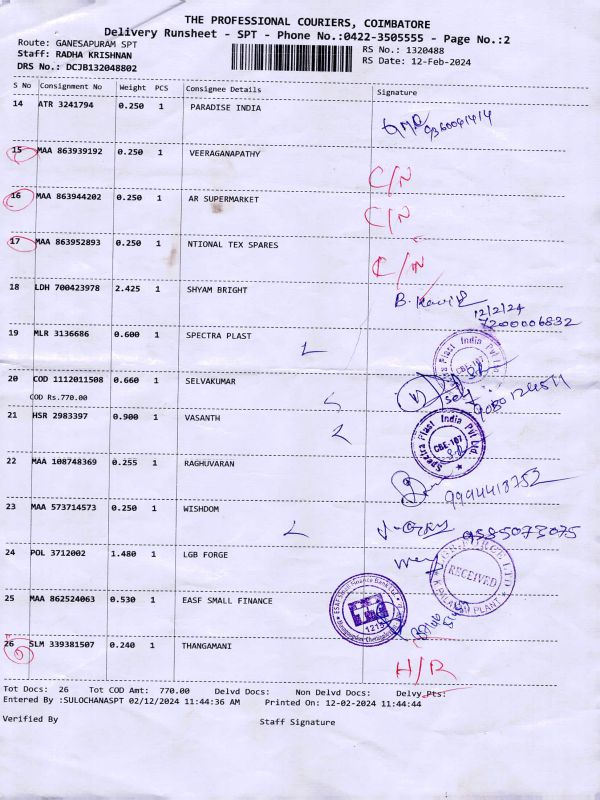 THE PROFESSIONAL COURIERS, COIMBATORE
Delivery Runsheet - SPT - Phone No.:0422-3505555 - Page No.:2
Route: GANESAPURAM SPT
Staff: RADHA KRISHNAN
DRS No.: DCJB132048802
RS No.: 1320488
RS Date: 12-Feb-2024
S No Consignment No Weight PCS Consignee Details Signature
14 ATR 3241794 0.250 1 PARADISE INDIA
15 MAA 863939192 0.250 1 VEERAGANAPATHY C/N
16 MAA 863944202 0.250 1 AR SUPERMARKET C/N
17 MAA 863952893 0.250 1 NTIONAL TEX SPARES C/N
18 LDH 700423978 2.425 1 SHYAM BRIGHT
12/2/24
7200006832
19 MLR 3136686 0.600 1 SPECTRA PLAST
Plast India Pvt Ltd
CBE-107
20 COD 1112011508 0.660 1 SELVAKUMAR
COD Rs.770.00
21 HSR 2983397 0.900 1 VASANTH
Spectra Plast India Pvt Ltd.
CBE-107
22 MAA 108748369 0.255 1 RAGHUVARAN
9994418752
23 MAA 573714573 0.250 1 WISHDOM
9585073075
24 POL 3712002 1.480 1 LGB FORGE
RECEIVED
PLANT
25 MAA 862524063 0.530 1 EASF SMALL FINANCE
26 SLM 339381507 0.240 1 THANGAMANI H/R
Tot Docs: 26 Tot COD Amt: 770.00 Delvd Docs: Non Delvd Docs: Delvy Pts:
Entered By :SULOCHANASPT 02/12/2024 11:44:36 AM Printed On: 12-02-2024 11:44:44
Verified By Staff Signature